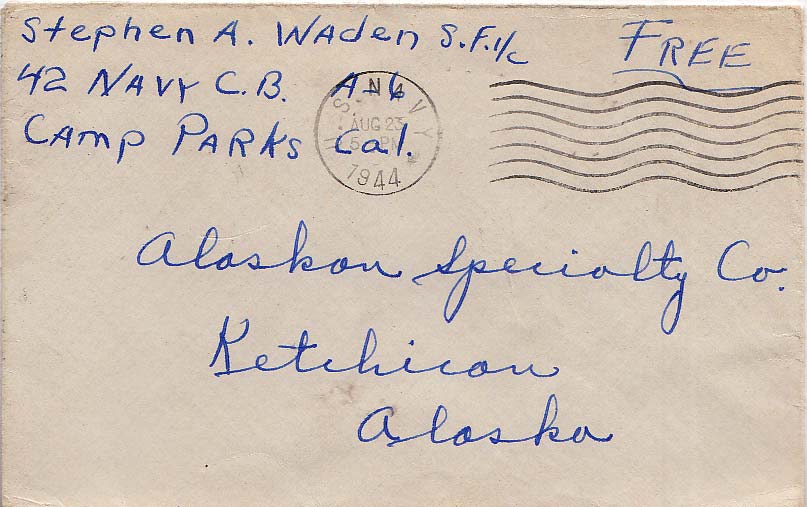 Stephen A. Waden S.F.1/c
FREE
42 Navy C.B. A-6
Camp Parks Cal.
U.S. NAVY
AUG 23
5 PM
1944
Alaskan Specialty Co.
Ketchican
Alaska